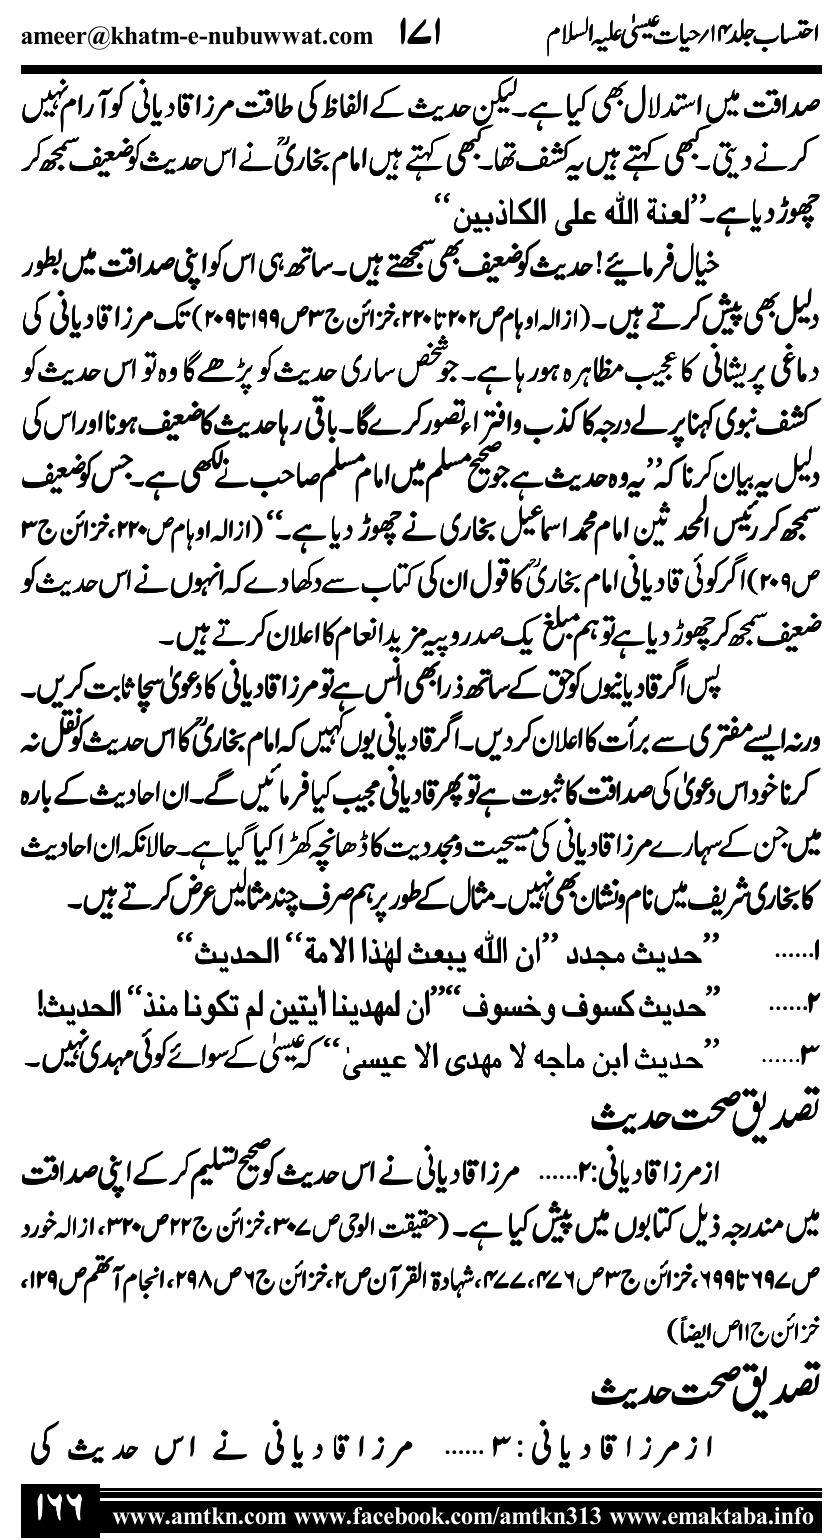 احتساب جلد ۱۴/حیات عیسیٰ علیہ السلام ۱۷۱ ameer@khatm-e-nubuwwat.com
صداقت میں استدلال بھی کیا ہے۔ لیکن حدیث کے الفاظ کی طاقت مرزا قادیانی کو آرام نہیں
کرنے دیتی۔ کبھی کہتے ہیں یہ کشف تھا۔ کبھی کہتے ہیں امام بخاریؒ نے اس حدیث کو ضعیف سمجھ کر
چھوڑ دیا ہے۔ ’’لعنة الله علی الکاذبین‘‘
خیال فرمائیے! حدیث کو ضعیف بھی سمجھتے ہیں۔ ساتھ ہی اس کو اپنی صداقت میں بطور
دلیل بھی پیش کرتے ہیں۔ (ازالہ اوہام ص۲۰۲ تا ۲۲۰، خزائن ج۳ ص۱۹۹ تا ۲۰۹) تک مرزا قادیانی کی
دماغی پریشانی کا عجیب مظاہرہ ہورہا ہے۔ جو شخص ساری حدیث کو پڑھے گا وہ تو اس حدیث کو
کشف نبوی کہنا پرلے درجہ کا کذب وافتراء تصور کرے گا۔ باقی رہا حدیث کا ضعیف ہونا اور اس کی
دلیل یہ بیان کرنا کہ ’’یہ وہ حدیث ہے جو صحیح مسلم میں امام مسلم صاحب نے لکھی ہے۔ جس کو ضعیف
سمجھ کر رئیس المحدثین امام محمد اسماعیل بخاری نے چھوڑ دیا ہے۔‘‘ (ازالہ اوہام ص۲۲۰، خزائن ج۳
ص۲۰۹) اگر کوئی قادیانی امام بخاریؒ کا قول ان کی کتاب سے دکھا دے کہ انہوں نے اس حدیث کو
ضعیف سمجھ کر چھوڑ دیا ہے تو ہم مبلغ یک صد روپیہ مزید انعام کا اعلان کرتے ہیں۔
پس اگر قادیانیوں کو حق کے ساتھ ذرا بھی انس ہے تو مرزا قادیانی کا دعویٰ سچا ثابت کریں۔
ورنہ ایسے مفتری سے برأت کا اعلان کردیں۔ اگر قادیانی یوں کہیں کہ امام بخاریؒ کا اس حدیث کو نقل نہ
کرنا خود اس دعویٰ کی صداقت کا ثبوت ہے تو پھر قادیانی مجیب کیا فرمائیں گے۔ ان احادیث کے بارہ
میں جن کے سہارے مرزا قادیانی کی مسیحیت ومجددیت کا ڈھانچہ کھڑا کیا گیا ہے۔ حالانکہ ان احادیث
کا بخاری شریف میں نام ونشان بھی نہیں۔ مثال کے طور پر ہم صرف چند مثالیں عرض کرتے ہیں۔
۱...... ’’حدیث مجدد ’’ان الله یبعث لهٰذا الامة‘‘ الحدیث‘‘
۲...... ’’حدیث کسوف وخسوف‘‘ ’’ان لمهدینا اٰیتین لم تکونا منذ‘‘ الحدیث!
۳...... ’’حدیث ابن ماجه لا مهدی الا عیسیٰ‘‘ کہ عیسیٰ کے سوائے کوئی مہدی نہیں۔
تصدیق صحت حدیث
از مرزا قادیانی: ۲...... مرزا قادیانی نے اس حدیث کو صحیح تسلیم کر کے اپنی صداقت
میں مندرجہ ذیل کتابوں میں پیش کیا ہے۔ (حقیقت الوحی ص۳۰۷، خزائن ج۲۲ ص۳۲۰، ازالہ خورد
ص۶۹۷ تا ۶۹۹، خزائن ج۳ ص۴۷۶، ۴۷۷، شہادۃ القرآن ص۲، خزائن ج۶ ص۲۹۸، انجام آتھم ص۱۲۹،
خزائن ج۱۱ ص ایضاً)
تصدیق صحت حدیث
از مرزا قادیانی: ۳...... مرزا قادیانی نے اس حدیث کی
۱۶۶ www.amtkn.com www.facebook.com/amtkn313 www.emaktaba.info